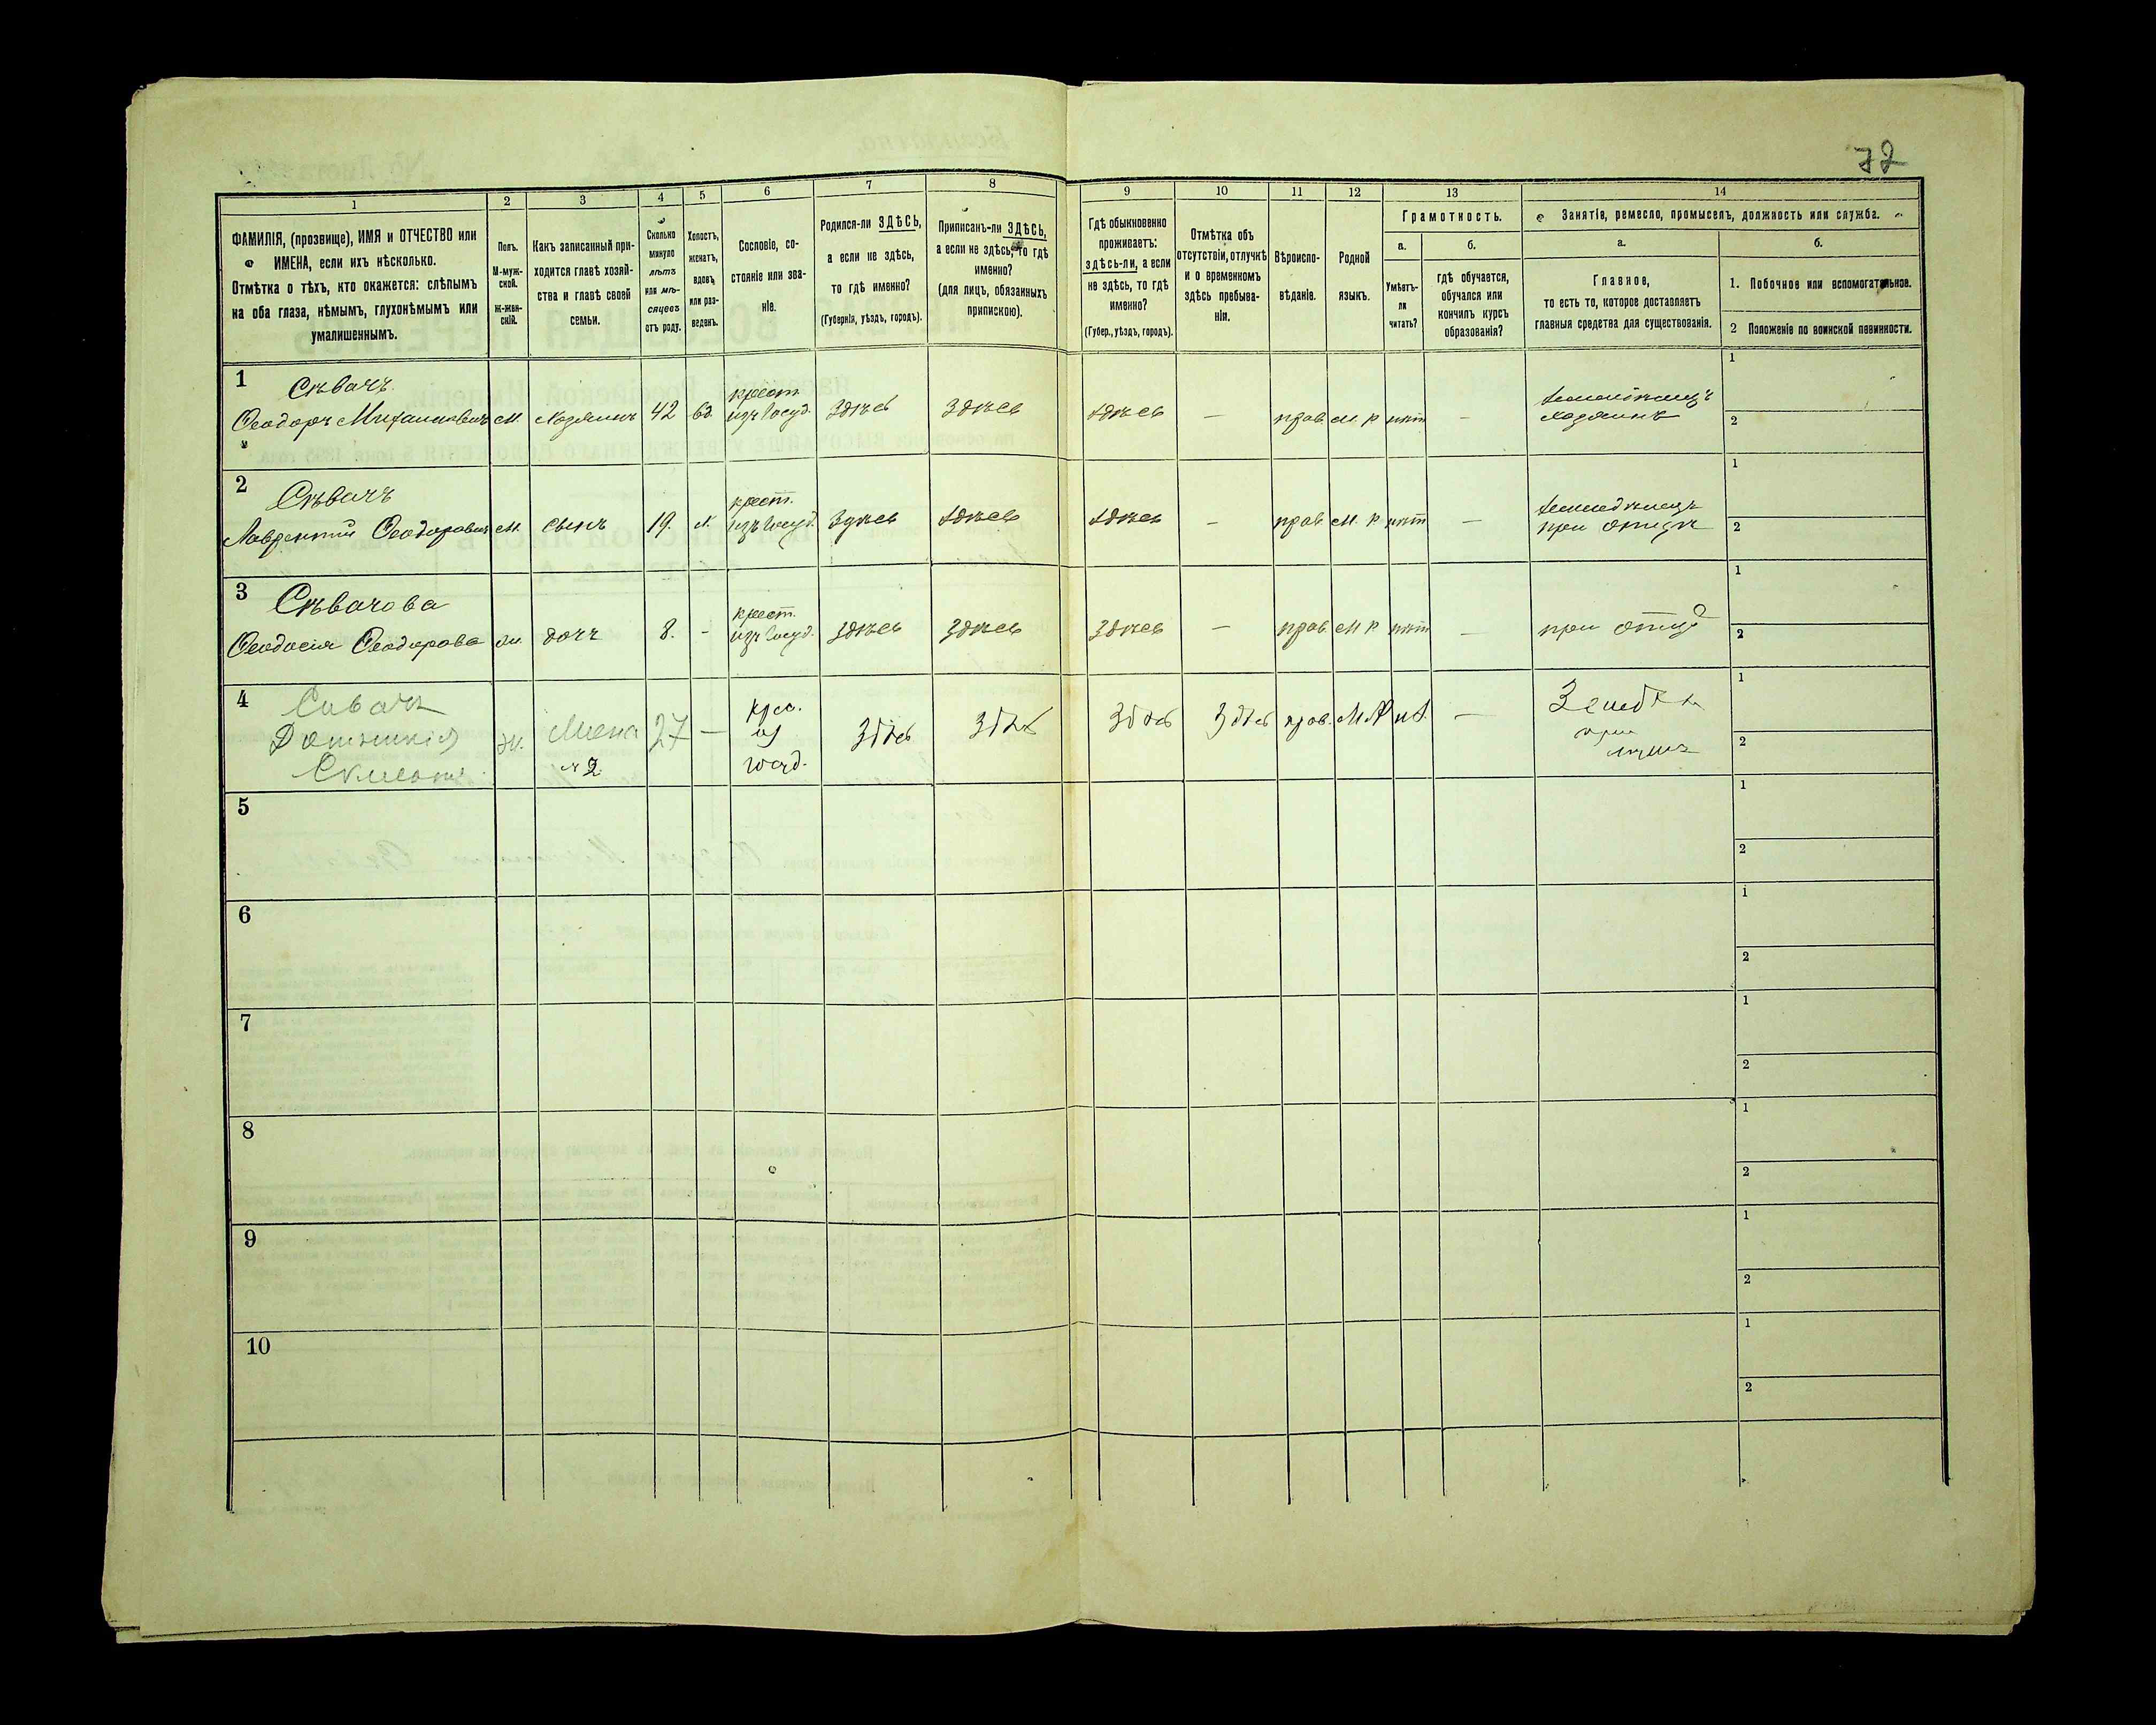 72
1 2 3 4 5 6 7 8 9 10 11 12 13 14
ФАМИЛІЯ, (прозвище), ИМЯ и ОТЧЕСТВО или
ИМЕНА, если ихъ нѣсколько.
Отмѣтка о тѣхъ, кто окажется: слѣпымъ
на оба глаза, нѣмымъ, глухонѣмымъ или
умалишеннымъ.
Полъ.
М-муж-
ской.
Ж-жен-
скій.
Какъ записанный при-
ходится главѣ хозяй-
ства и главѣ своей
семьи.
Сколько
минуло
лѣтъ
или мѣ-
сяцевъ
отъ роду.
Холостъ,
женатъ,
вдовъ
или раз-
веденъ.
Сословіе, со-
стояніе или зва-
ніе.
Родился-ли ЗДѢСЬ,
а если не здѣсь,
то гдѣ именно?
(Губернія, уѣздъ, городъ).
Приписанъ-ли ЗДѢСЬ,
а если не здѣсь, то гдѣ
именно?
(для лицъ, обязанныхъ
припискою).
Гдѣ обыкновенно
проживаетъ:
здѣсь-ли, а если
не здѣсь, то гдѣ
именно?
(Губер., уѣздъ, городъ).
Отмѣтка объ
отсутствіи, отлучкѣ
и о временномъ
здѣсь пребыва-
ніи.
Вѣроиспо-
вѣданіе.
Родной
языкъ.
Грамотность.
а.
Умѣетъ-
ли
читать?
б.
гдѣ обучается,
обучался или
кончилъ курсъ
образованія?
Занятіе, ремесло, промыселъ, должность или служба.
а.
Главное,
то есть то, которое доставляетъ
главныя средства для существованія.
б.
1. Побочное или вспомогательное.
2 Положеніе по воинской повинности.
1 Сѣвачъ
Ѳеодоръ Михаиловичъ М. Хозяинъ 42 вд. крест. изъ Госуд. Здѣсь Здѣсь Здѣсь — прав. М. Р нѣт — хозяинъ
1
2
2 Сѣвачъ
Лаврентій Ѳеодоровичъ М. сынъ 19. х. крест. изъ Госуд. Здѣсь Здѣсь Здѣсь — прав. М. Р нѣт — при отцѣ
1
2
3 Сѣвачова
Ѳеодосія Ѳеодорова Ж. дочь 8. - крест. изъ Госуд. Здѣсь Здѣсь Здѣсь — прав. М Р нѣт — при отцѣ
1
2
4 Сивачъ
Ж. 27 — крес. из госуд. Здѣсь Здѣсь Здѣсь Здѣсь прав. М Р —
при
1
2
5
1
2
6
1
2
7
1
2
8
1
2
9
1
2
10
1
2